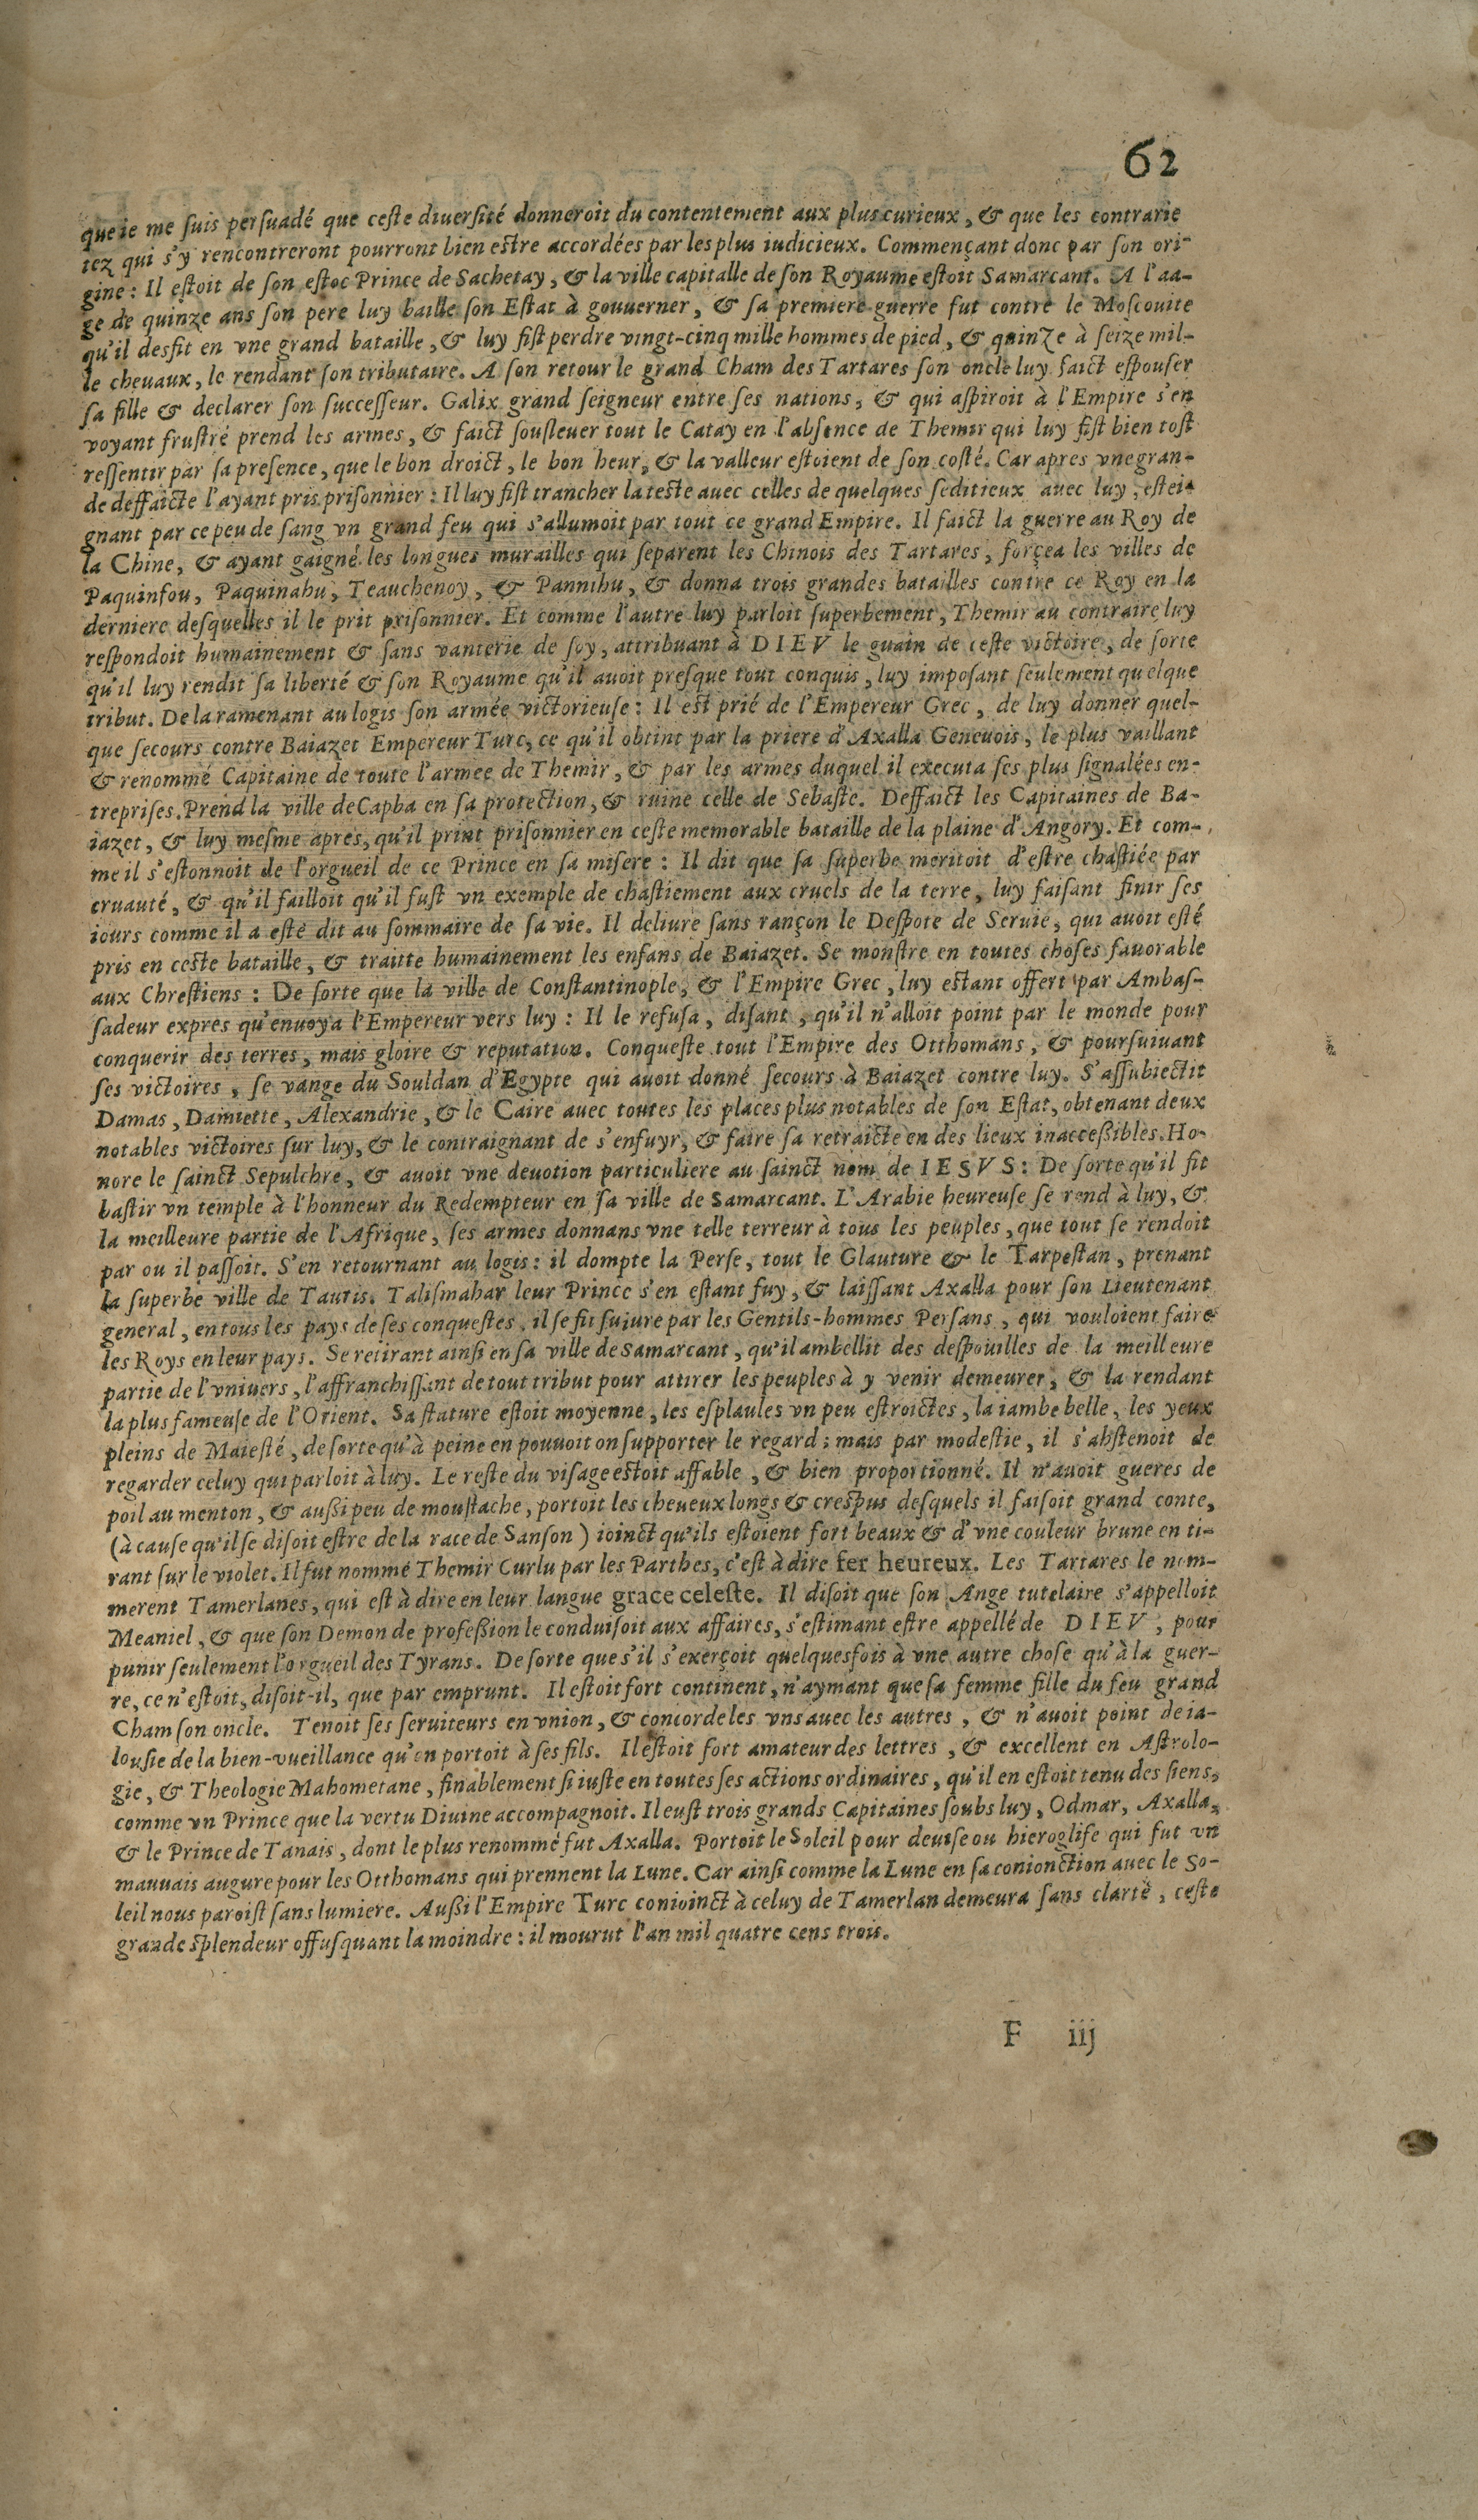 62
que ie me ſuis perſuadé que ceſte diuerſité donneroit du contentement aux plus curieux, & que les contrarie
tez qui s'y rencontreront pourront bien eſtre accordées par les plus iudicieux. Commençant donc par ſon ori-
gine : Il eſtoit de ſon eſtoc Prince de Sachetay, & la ville capitalle de ſon Royaume eſtoit Samarcant. A l'aa-
ge de quinze ans ſon pere luy baille ſon Eſtat à gouuerner, & ſa premiere guerre fut contre le Moſcouite
qu'il desfit en vne grand bataille, & luy fiſt perdre vingt-cinq mille hommes de pied, & quinze à ſeize mil-
le cheuaux, le rendant ſon tributaire. A ſon retour le grand Cham des Tartares ſon oncle luy faict eſpouſer
ſa fille & declarer ſon ſucceſſeur. Galix grand ſeigneur entre ſes nations, & qui aſpiroit à l'Empire s'en
voyant fruſtré prend les armes, & faict ſouſleuer tout le Catay en l'abſence de Themir qui luy fiſt bien toſt
reſſentir par ſa preſence, que le bon droict, le bon heur, & la valleur eſtoient de ſon coſté. Car apres vne gran-
de deffaicte l'ayant pris priſonnier : Il luy fiſt trancher la teſte auec celles de quelques ſeditieux auec luy, eſtei-
gnant par ce peu de ſang vn grand feu qui s'allumoit par tout ce grand Empire. Il faict la guerre au Roy de
la Chine, & ayant gaigné les longues murailles qui ſeparent les Chinois des Tartares, forçea les villes de
Paquinfou, Paquinahu, Teauchenoy, & Pannihu, & donna trois grandes batailles contre ce Roy en la
derniere deſquelles il le prit priſonnier. Et comme l'autre luy parloit ſuperbement, Themir au contraire luy
reſpondoit humainement & ſans vanterie de ſoy, attribuant à DIEV le guain de ceſte victoire, de ſorte
qu'il luy rendit ſa liberté & ſon Royaume qu'il auoit preſque tout conquis, luy impoſant ſeulement quelque
tribut. De la ramenant au logis ſon armée victorieuſe : Il est prié de l'Empereur Grec, de luy donner quel-
que ſecours contre Baiazet Empereur Turc, ce qu'il obtint par la priere d'Axalla Geneuois, le plus vaillant
& renommé Capitaine de toute l'armee de Themir, & par les armes duquel il executa ſes plus ſignalées en-
trepriſes. Prend la ville de Capba en ſa protection, & ruine celle de Sebaſte. Deffaict les Capitaines de Ba-
iazet, & luy meſme apres, qu'il print priſonnier en ceſte memorable bataille de la plaine d'Angory. Et com-
me il s'eſtonnoit de l'orgueil de ce Prince en ſa miſere : Il dit que ſa ſuperbe meritoit d'eſtre chaſtiée par
cruauté, & qu'il failloit qu'il fuſt vn exemple de chaſtiement aux cruels de la terre, luy faiſant finir ſes
iours comme il a eſté dit au ſommaire de ſa vie. Il deliure ſans rançon le Deſpote de Seruie, qui auoit eſté
pris en ceſte bataille, & traitte humainement les enfans de Baiazet. Se monſtre en toutes choſes fauorable
aux Chreſtiens : De ſorte que la ville de Conſtantinople, & l'Empire Grec, luy eſtant offert par Ambaſ-
ſadeur expres qu'enuoya l'Empereur vers luy : Il le refuſa, diſant, qu'il n'alloit point par le monde pour
conquerir des terres, mais gloire & reputation. Conqueſte tout l'Empire des Otthomans, & pourſuiuant
ſes victoires, ſe vange du Souldan d'Egypte qui auoit donné ſecours à Baiazet contre luy. S'aſſubiectit
Damas, Damiette, Alexandrie, & le Caire auec toutes les places plus notables de ſon Eſtat, obtenant deux
notables victoires ſur luy, & le contraignant de s'enfuyr, & faire ſa retraicte en des lieux inacceßibles. Ho-
nore le ſainct Sepulchre, & auoit vne deuotion particuliere au ſainct nom de IESVS : De ſorte qu'il fit
baſtir vn temple à l'honneur du Redempteur en ſa ville de Samarcant. L'Arabie heureuſe ſe rend à luy, &
la meilleure partie de l'Afrique, ſes armes donnans vne telle terreur à tous les peuples, que tout ſe rendoit
par ou il paſſoit. S'en retournant au logis : il dompte la Perſe, tout le Glauture & le Tarpeſtan, prenant
la ſuperbe ville de Tauris. Taliſmahar leur Prince s'en eſtant fuy, & laiſſant Axalla pour ſon Lieutenant
general, en tous les pays de ſes conqueſtes, il ſe fit ſuiure par les Gentils-hommes Perſans, qui vouloient faire
les Roys en leur pays. Se retirant ainſi en ſa ville de Samarcant, qu'il ambellit des deſpouilles de la meilleure
partie de l'vniuers, l'affranchiſſant de tout tribut pour attirer les peuples à y venir demeurer, & la rendant
la plus fameuſe de l'Orient. Sa ſtature eſtoit moyenne, les eſplaules vn peu eſtroictes, la iambe belle, les yeux
pleins de Maieſté, de ſorte qu'à peine en pouuoit on ſupporter le regard ; mais par modeſtie, il s'abſtenoit de
regarder celuy qui parloit à luy. Le reſte du viſage eſtoit affable, & bien proportionné. Il n'auoit gueres de
poil au menton, & außi peu de mouſtache, portoit les cheueux longs & creſpus deſquels il faiſoit grand conte,
(à cauſe qu'il ſe diſoit eſtre de la race de Sanſon) ioinct qu'ils eſtoient fort beaux & d'vne couleur brune en ti-
rant ſur le violet. Il fut nommé Themir Curlu par les Parthes, c'eſt à dire fer heureux. Les Tartares le nom-
merent Tamerlanes, qui eſt à dire en leur langue grace celeſte. Il diſoit que ſon Ange tutelaire s'appelloit
Meaniel, & que ſon Demon de profeßion le conduiſoit aux affaires, s'eſtimant eſtre appellé de DIEV, pour
punir ſeulement l'orgueil des Tyrans. De ſorte que s'il s'exerçoit quelquesfois à vne autre choſe qu'à la guer-
re, ce n'eſtoit, diſoit-il, que par emprunt. Il eſtoit fort continent, n'aymant que ſa femme fille du feu grand
Cham ſon oncle. Tenoit ſes ſeruiteurs en vnion, & concorde les vns auec les autres, & n'auoit point de ia-
louſie de la bien-vueillance qu'on portoit à ſes fils. Il eſtoit fort amateur des lettres, & excellent en Aſtrolo-
gie, & Theologie Mahometane, finablement ſi iuſte en toutes ſes actions ordinaires, qu'il en eſtoit tenu des ſiens,
comme vn Prince que la vertu Diuine accompagnoit. Il euſt trois grands Capitaines ſoubs luy, Odmar, Axalla,
& le Prince de Tanais, dont le plus renommé fut Axalla. Portoit le Soleil pour deuiſe ou hieroglife qui fut vn
mauuais augure pour les Otthomans qui prennent la Lune. Car ainſi comme la Lune en ſa conionction auec le So-
leil nous paroiſt ſans lumiere. Außi l'Empire Turc conioinct à celuy de Tamerlan demeura ſans clarté, ceſte
grande ſplendeur offuſquant la moindre : il mourut l'an mil quatre cens trois.
F iij